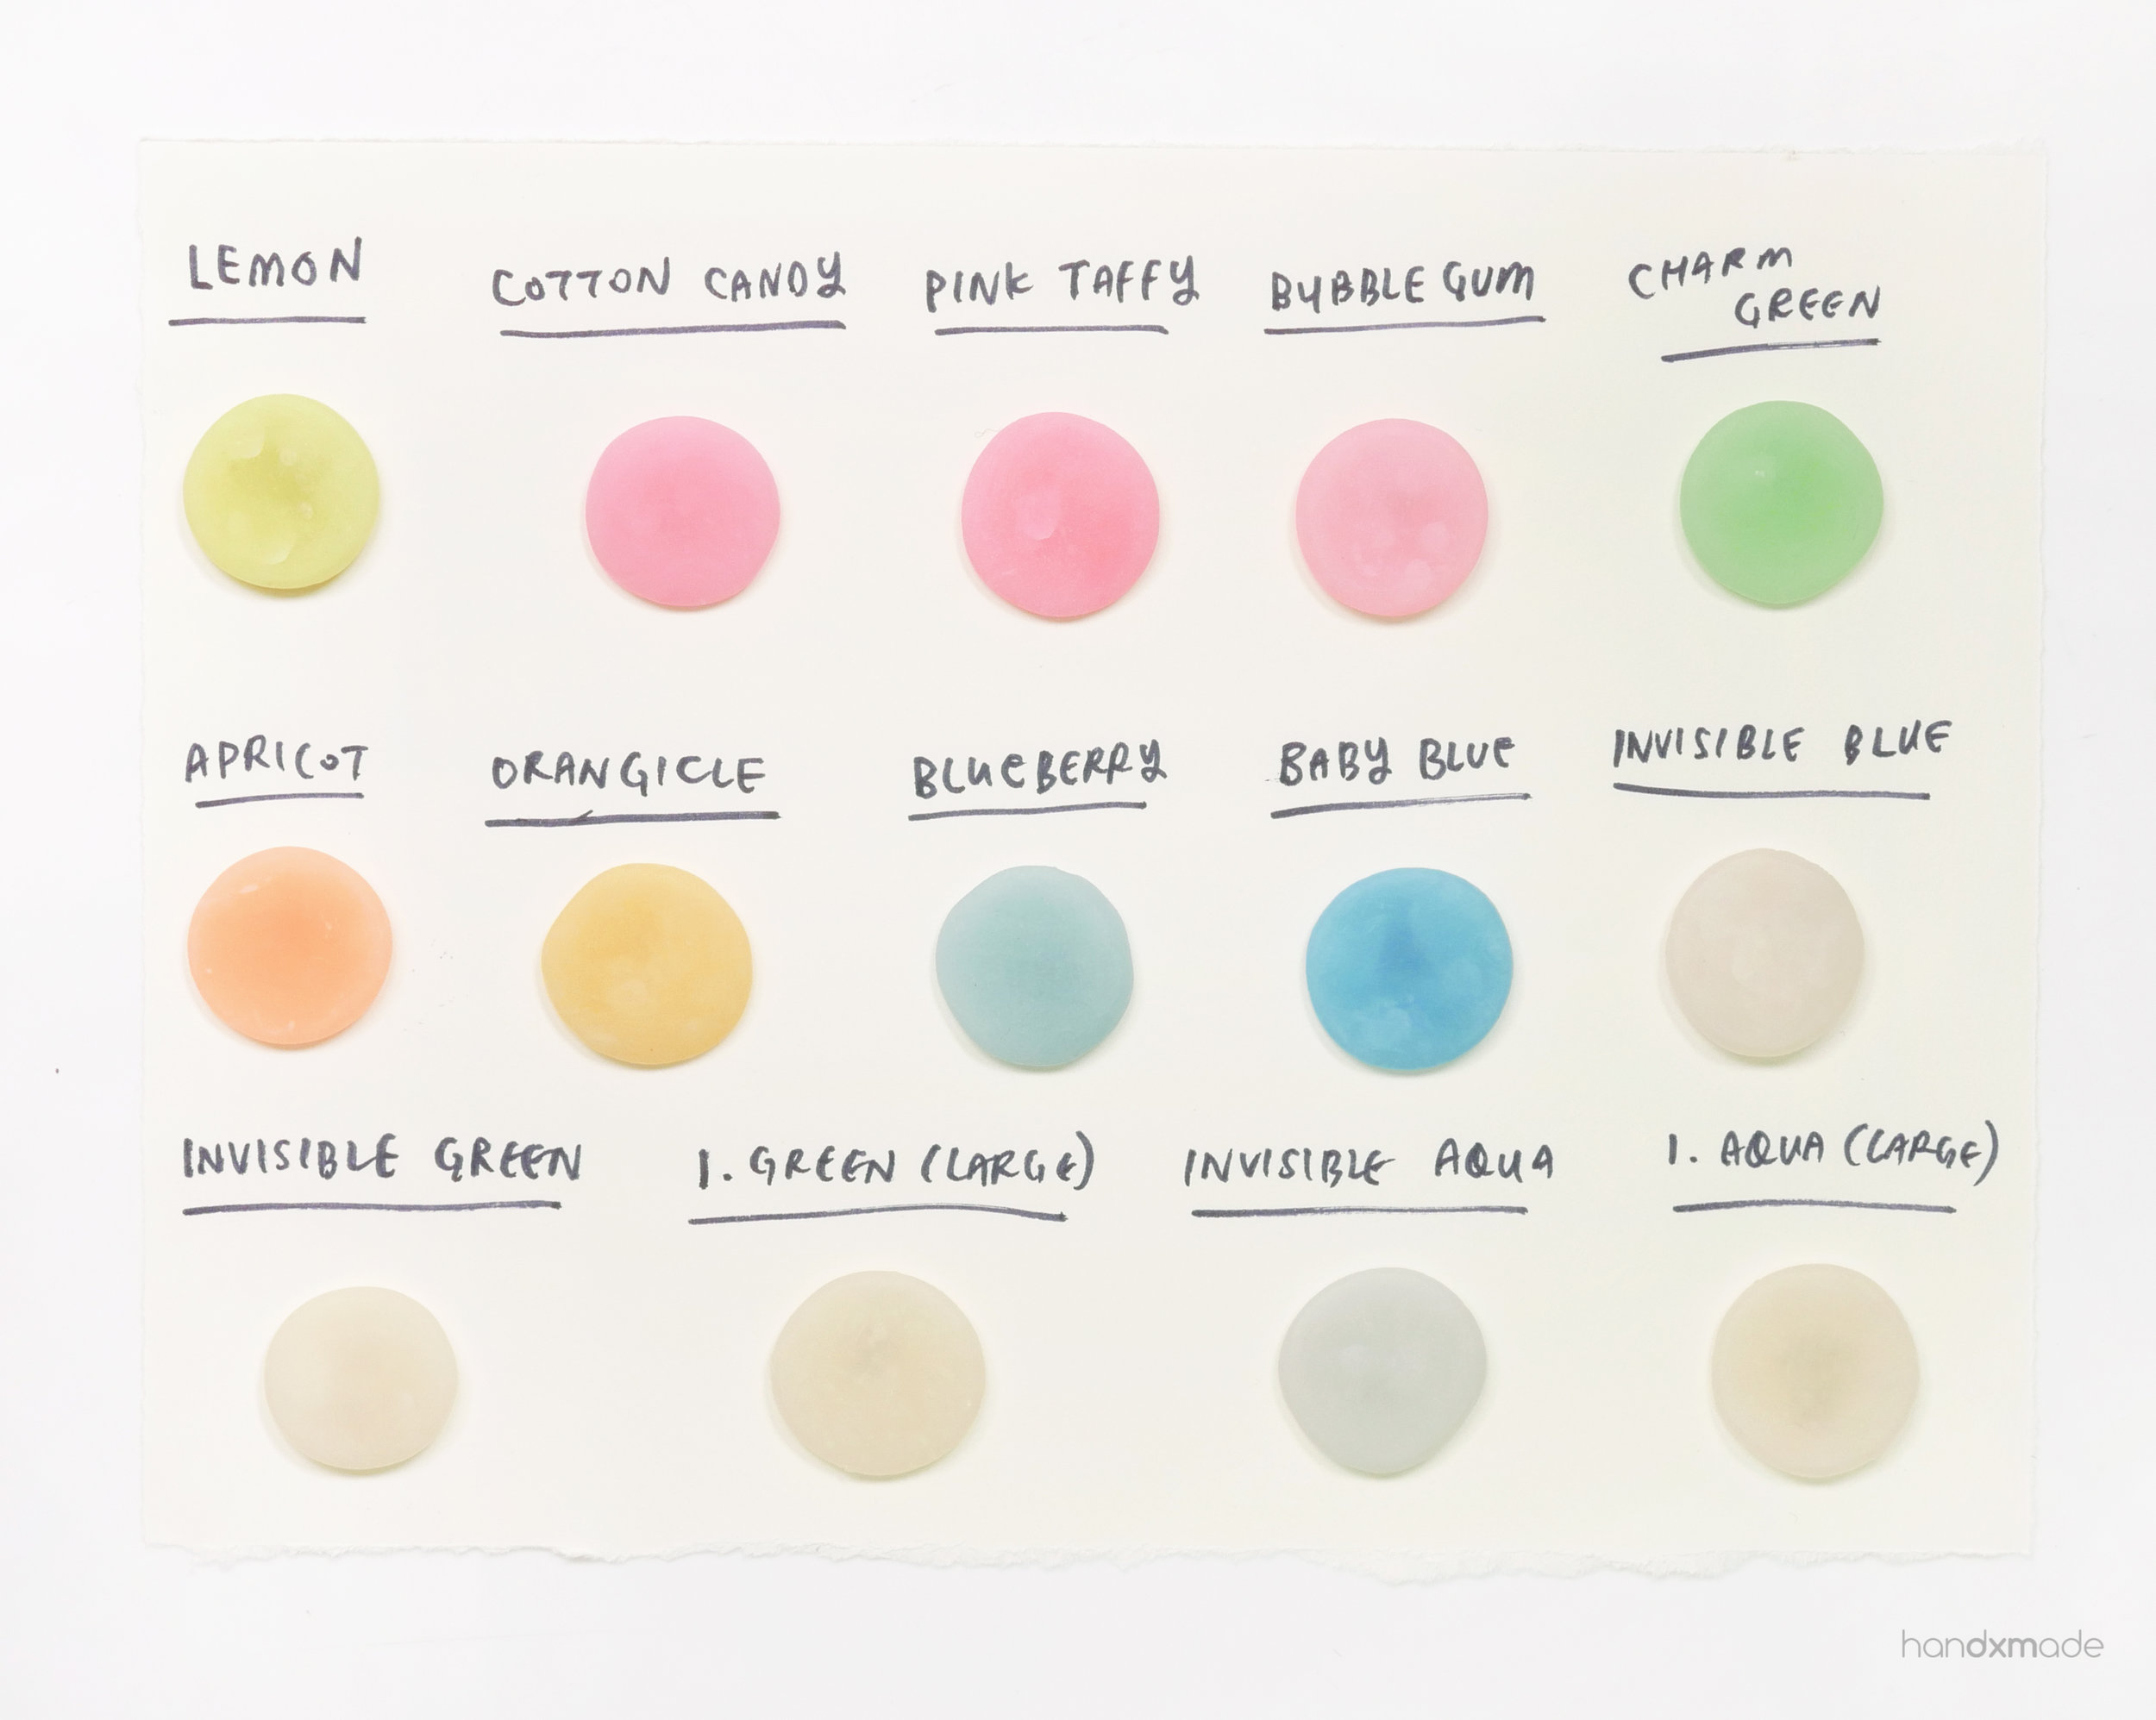 LEMON
COTTON CANDY
PINK TAFFY
BUBBLE GUM
CHARM
GREEN
APRICOT
ORANGICLE
BLUEBERRY
BABY BLUE
INVISIBLE BLUE
INVISIBLE GREEN
I. GREEN (LARGE)
INVISIBLE AQUA
I. AQUA (LARGE)
handxmade